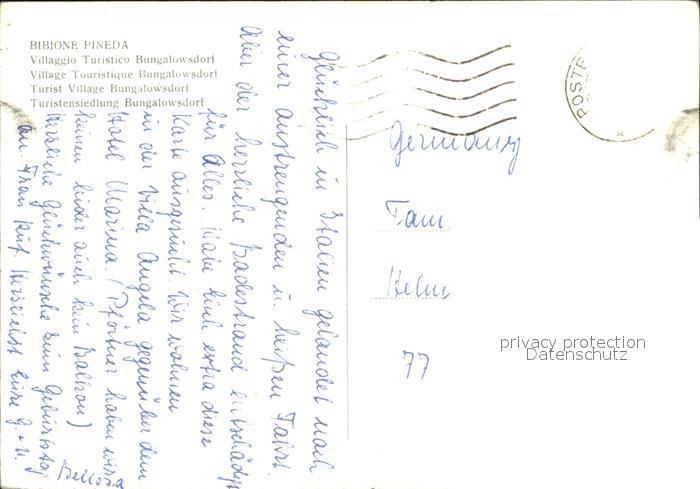 BIBIONE PINEDA
Villaggio Turistico Bungalowsdorf
Village Touristique Bungalowsdorf
Turist Village Bungalowsdorf
Turistensiedlung Bungalowsdorf
Glücklich in Italien gelandet nach
einer anstrengenden u. heißen Fahrt.
Aber der herrliche Badestrand entschädigt
für Alles. Habe Euch extra diese
Karte ausgesucht. Wir wohnen
in der Villa Angela gegenüber dem
Hotel Marina. (Pförtner haben wir
keinen leider auch kein Balkon)
Herzliche Glückwünsche zum Geburtstag
an Frau Herzlichst Eure G. + H.
Germany
Fam.
Helm
77
POSTE
privacy protection
Datenschutz